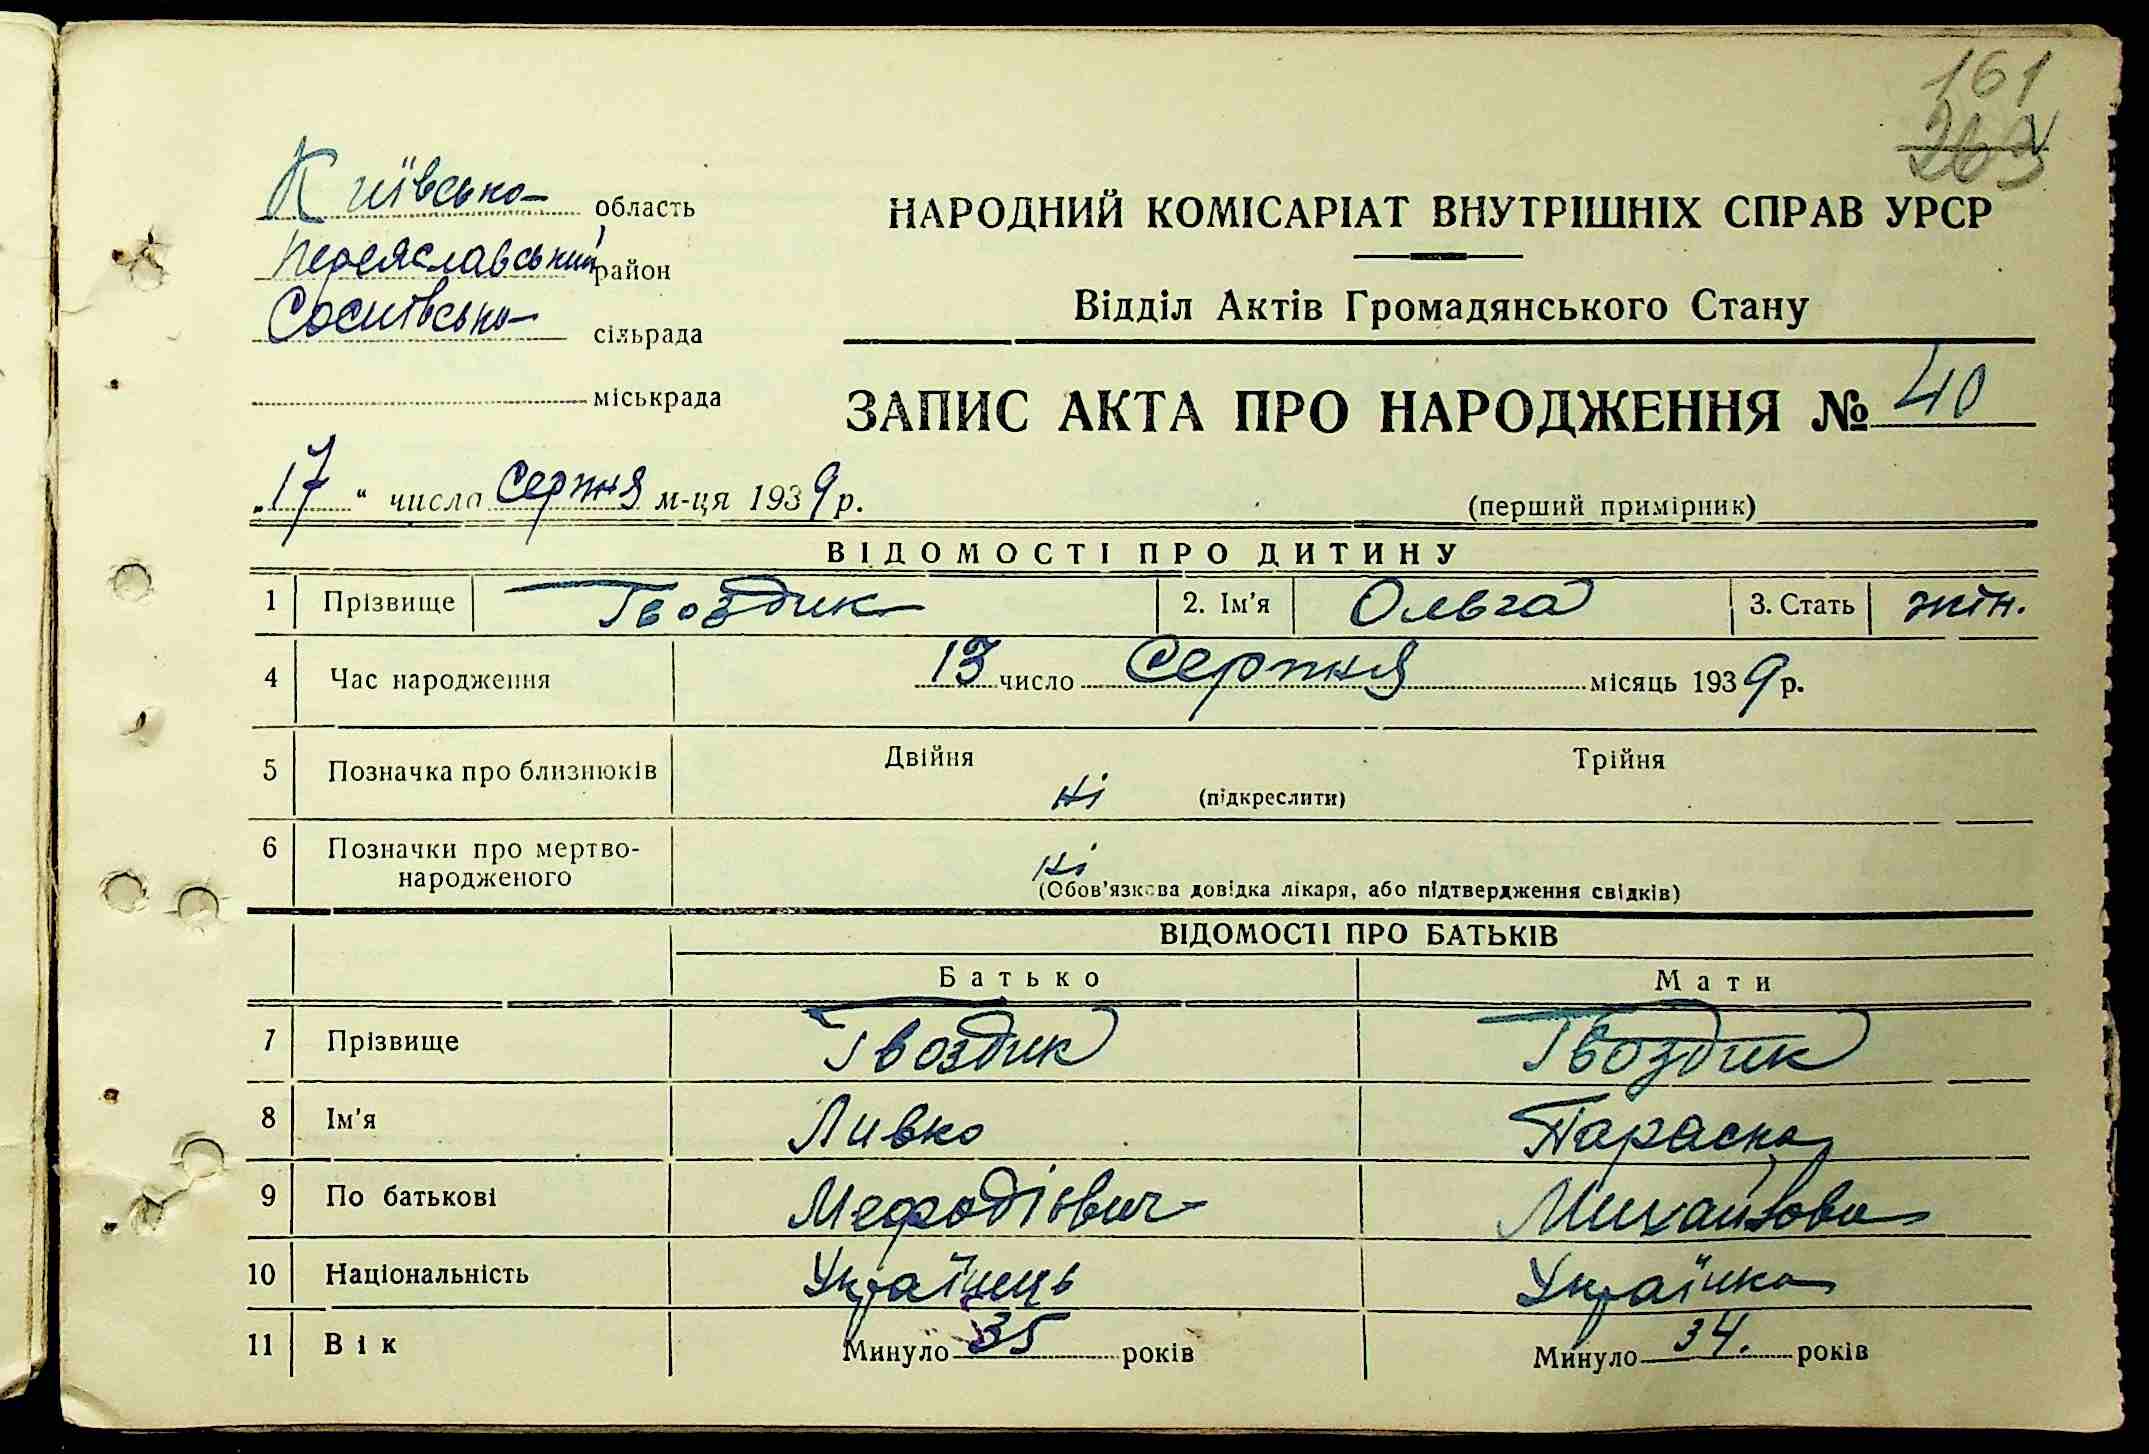 161
263
Київська область
Переяславський район
Соснівська сільрада
міськрада
НАРОДНИЙ КОМІСАРІАТ ВНУТРІШНІХ СПРАВ УРСР
Відділ Актів Громадянського Стану
ЗАПИС АКТА ПРО НАРОДЖЕННЯ № 40
„17“ числа Серпня м-ця 1939 р.
(перший примірник)
ВІДОМОСТІ ПРО ДИТИНУ
1 Прізвище Гвоздик 2. Ім'я Ольга 3. Стать жін.
4 Час народження 13 число Серпня місяць 1939 р.
5 Позначка про близнюків Двійня Трійня
ні (підкреслити)
6 Позначки про мертво-
народженого ні
(Обов'язкова довідка лікаря, або підтвердження свідків)
ВІДОМОСТІ ПРО БАТЬКІВ
Батько Мати
7 Прізвище Гвоздик Гвоздик
8 Ім'я Ливко Параска
9 По батькові Мефодієвич Михайлова
10 Національність Українець Українка
11 Вік Минуло 35 років Минуло 34. років